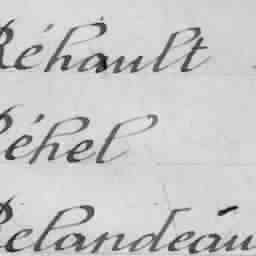 Réhault
Réhel
Relandeau